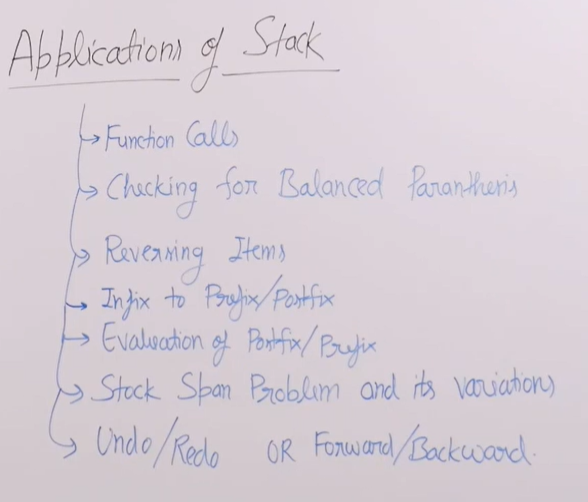 Applications of Stack
Function Calls
Checking for Balanced Paranthesis
Reversing Items
Infix to Prefix/Postfix
Evaluation of Postfix/Prefix
Stock Span Problem and its variations
Undo/Redo OR Forward/Backward.